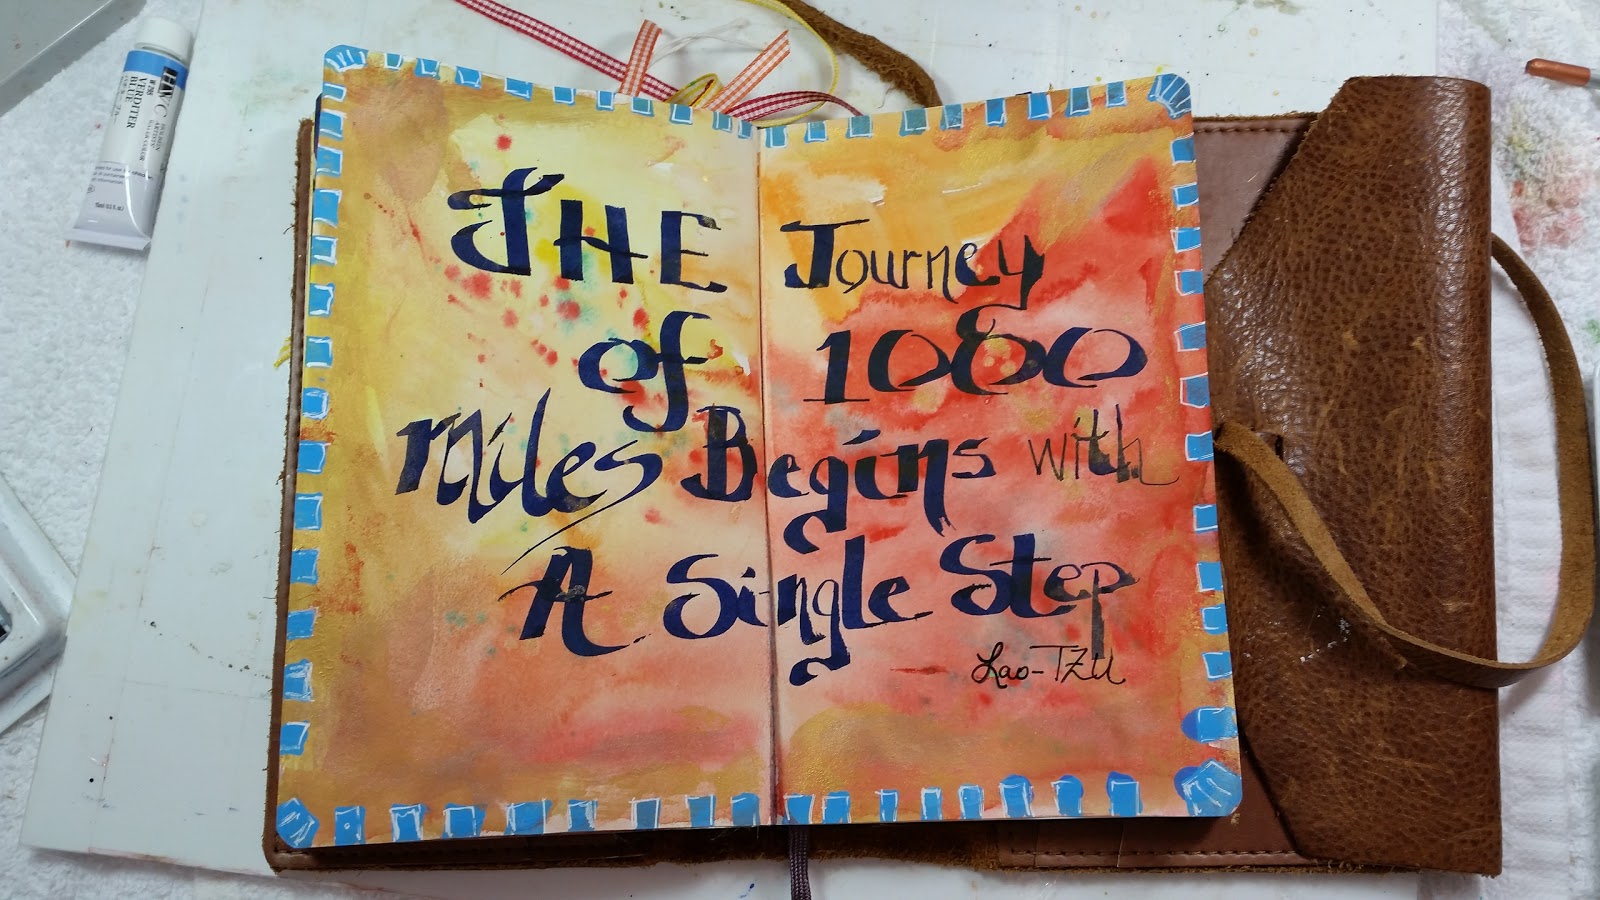 THE Journey
of 1000
miles Begins with
A Single Step
Lao-TZU
H W C
#296
VERDITER
BLUE